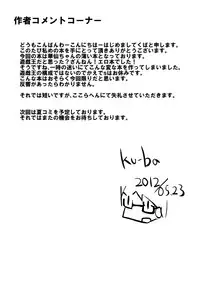 作者コメントコーナー
どうもこんばんわーこんにちはーはじめましてくばと申します。
このたび私めの本を手にとって頂きありがとうございます。
今回の本は華仙ちゃんの薄い本となっております。
遊戯王だと思った?ざんねん!エロ本でした!
そうですね、一時の迷いにてこんな変な本を作ってしまいました。
遊戯王の構成ではないのでかえでsはお休みです。
こんな本はおそらく今回限りだと思います。
反響があったらわかりませんが。
それでは短いですが、ここらへんにて失礼させていただきます。
次回は夏コミを予定しております。
それではまたの機会をお待ちしております。
Ku-ba
2012/05.23